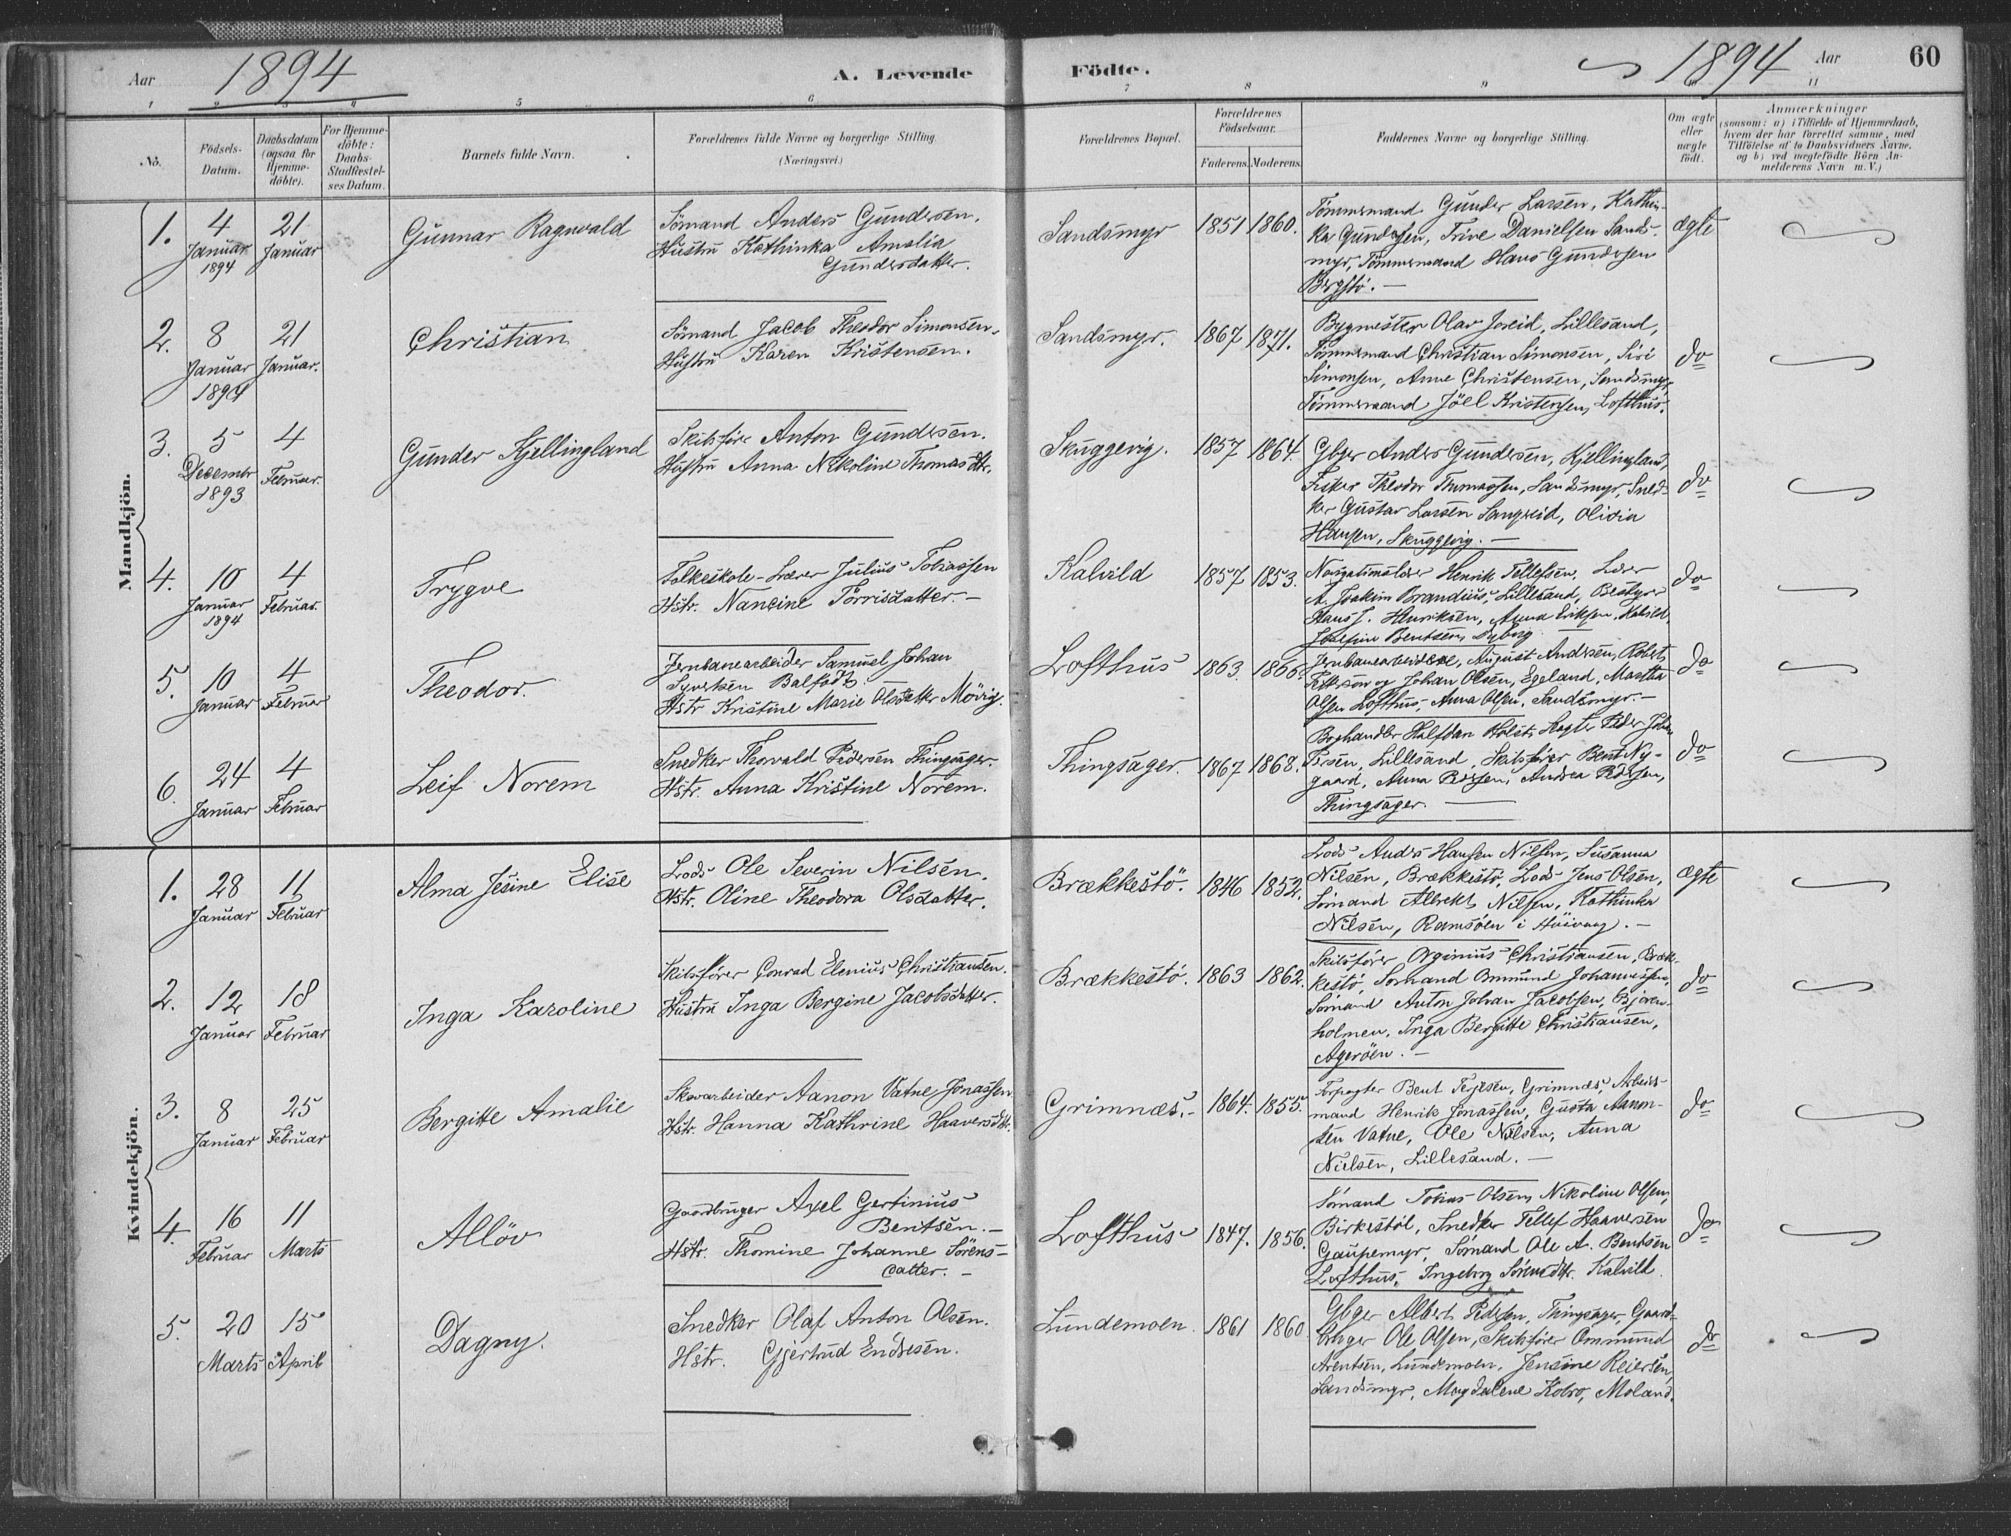 Aar 1894 A. Levende Födte. 1894 Aar 60
1 2 3 4 5 6 7 8 9 10 11
No. Födsels-Datum. Daabsdatum (ogsaa for Hjemme-döbte). For Hjemme-döbte: Daabs-Stadfæstel-ses Datum. Barnets fulde Navn. Forældrenes fulde Navne og borgerlige Stilling. (Næringsvei.) Forældrenes Bopæl. Forældrenes Födselsaar. Faderens. Moderens. Faddernes Navne og borgerlige Stilling. Om ægte eller uægte födt. Anmærkninger (saasom: a) i Tilfælde af Hjemmedaab, hvem der har forrettet samme, med Tilföielse af to Daabsvidners Navne, og b) ved uægtefödte Börn An-melderens Navn m.V.)
Mandkjön.
1. 4 Januar 1894 21 Januar Gunnar Ragnvald
Sömand Anders Gundersen.
Hustru Kathinka Amalia
Gundersdatter.
Sandsmyr 1851 1860.
Tömmermand Gunder Larsen, Kathin-
ka Gundersen, Trine Danielsen Sands-
myr, Tömmermand Hans Gundersen
Bergstö. —
ægte
2. 8 Januar 1894 21 Januar. Christian
Sömand Jacob Theodor Simonsen.
Hustru Karen Kristensen.
Sandsmyr. 1867 1871.
Bygmester Olav Joreid, Lillesand,
Tömmermand Christian Simonsen, Siri
Simonsen, Anne Christensen, Sandsmyr,
Tömmermand Jöel Kristensen, Lofthus.
do
3. 5 Decembr 1893 4 Februar. Gunder Kjellingland
Skibsförer Anton Gundersen.
Hustru Anna Nikoline Thomasdtr.
Skuggevig. 1857 1864.
Gbger Anders Gundersen, Kjellingland,
Fisker Theodor Thomassen, Sandsmyr, Sned-
ker Gustav Larsen Sangreid, Olivia
Hansen, Skuggevig. —
do
4. 10 Januar 1894 4 Februar. Trygve
Folkeskole-Lærer Julius Tobiassen
Hstr. Nancine Törrisdatter. —
Kalvild 1857 1853.
Navigationslærer Henrik Tellefsen, Lærer
A. Joakim Brandius, Lillesand, Bestyrer
Hans J. Henriksen, Anna Eriksen, Kalvild,
Josefine Bentsen, Dyberg.
do
5. 10 Januar 4 Februar Theodor.
Jernbanearbeider Samuel Johan
Syvertsen Balfödt.
Hstr. Kristine Marie Olsdatter Mövig.
Lofthus 1863. 1866.
Jernbanearbeiderne, August Andersen, Robert
Pettersen og Johan Olsen, Egeland, Martha
Olsen Lofthus, Anna Olsen, Sandsmyr. —
do
6. 24 Januar 4 Februar Leif Norem
Snedker Thorvald Pedersen Thingsager.
Hstr. Anna Kristine Norem.
Thingsager. 1867 1868.
Boghandler Halfdan Holst, Peder
Lillesand, Skibsförer Bent Ny-
gaard, Anna Andrea Pedersen,
Thingsager. —
do
Kvindekjön.
1. 28 Januar 11 Februar Alma Jesine Elise
Lods Ole Severin Nilsen.
Hstr. Oline Theodora Olsdatter.
Brækkestö. 1846 1852.
Lods Anders Hansen Nilsen, Susanna
Nilsen, Brækkestö, Lods Jens Olsen,
Sömand Albrekt Nilsen, Kathinka
Nilsen, Ramsöen i Höivaag. —
ægte
2. 12 Januar 18 Februar Inga Karoline
Skibsförer Conrad Elenius Christiansen.
Hustru Inga Bergine Jacobsdatter.
Brækkestö. 1863 1862.
Skibsförer Orginius Christiansen, Bræk-
kestö, Sömand Ommund Johannessen,
Sömand Anton Johan Jacobsen, Bjorn-
holmen, Inga Bergitte Christiansen,
Agerøen. —
do
3. 8 Januar 25 Februar Bergitte Amalie
Skovarbeider Aanon Vatne Jonassen.
Hstr. Hanna Kathrine Haaversdtr.
Grimnæs. 1864. 1855.
Forpagter Bent Terjesen, Grimnæs, Arbeids-
mand Henrik Jonassen, Gusta Aanon-
sen Vatne, Ole Nilsen, Anna
Nielsen, Lillesand. —
do
4. 16 Februar 11 Marts Allöv
Gaardbruger Axel Gertinius
Bentsen. —
Hstr. Thomine Johanne Sörens-
datter. —
Lofthus 1847. 1856.
Sömand Tobias Olsen, Nikoline Olsen,
Birkestöl, Snedker Tellef Haaversen
Gaupemyr, Sömand Ole A. Bentsen
Lofthus, Ingeborg Sörensdtr. Kalvild.
do
5. 20 Marts 15 April Dagny.
Snedker Olaf Anton Olsen.
Hstr. Gjertrud Endresen.
Lundemoen. 1861 1860
Gbger Albert Pedersen, Thingsager, Gaard-
bruger Ole Olsen, Skibsförer Ommund
Arentsen, Lundemoen, Jensine Reiersen,
Sandsmyr, Magdalene Kobro, Moland.
do